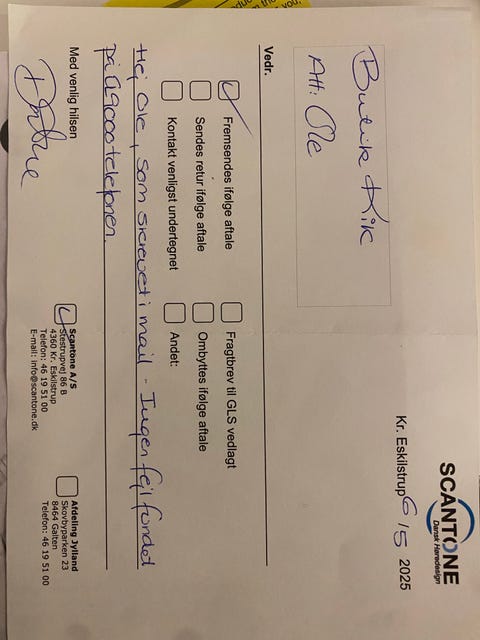 SCANTONE
Dansk Høredesign
Kr. Eskilstrup 6/5 2025
Butik Kik
Att: Ole
Vedr.
Fremsendes ifølge aftale
Fragtbrev til GLS vedlagt
Sendes retur ifølge aftale
Ombyttes ifølge aftale
Kontakt venligst undertegnet
Andet:
Hej Ole, som skrevet i mail - Ingen fejl fundet
på telefonen.
Med venlig hilsen
Dorthe
Scantone A/S
Stestrupvej 86 B
4360 Kr. Eskilstrup
Telefon: 46 19 51 00
E-mail: info@scantone.dk
Afdeling Jylland
Skovbyparken 23
8464 Galten
Telefon: 46 19 51 00